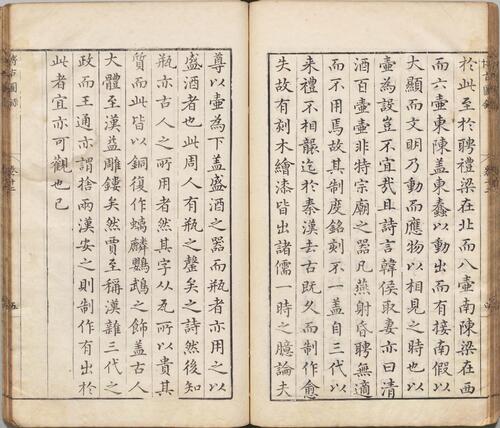 於此至於聘禮梁在北而八壷南陳梁在西
而六壷東陳蓋東蠢以動出而有接南假以
大顯而文明乃動而應物以相見之時也以
壷為設豈不宜哉且詩言韓侯取妻亦曰清
酒百壷壷非特宗廟之器凡燕射昏聘無適
而不用焉故其制度銘刻不一蓋自三代以
来禮不相襲迄於秦漢去古既久而制作愈
失故有刻木繪漆皆出諸儒一時之臆論夫
尊以壷為下蓋盛酒之器而瓶者亦用之以
盛酒者也此周人有瓶之罄矣之詩然後知
瓶亦古人之所用者然其字从瓦所以貴其
質而此皆以銅復作螭麟鸚鵡之飾蓋古人
大體至漢益雕鏤矣然賈至稱漢雜三代之
政而王通亦謂捨兩漢安之則制作有出於
此者宜亦可觀也已
博古圖録
五